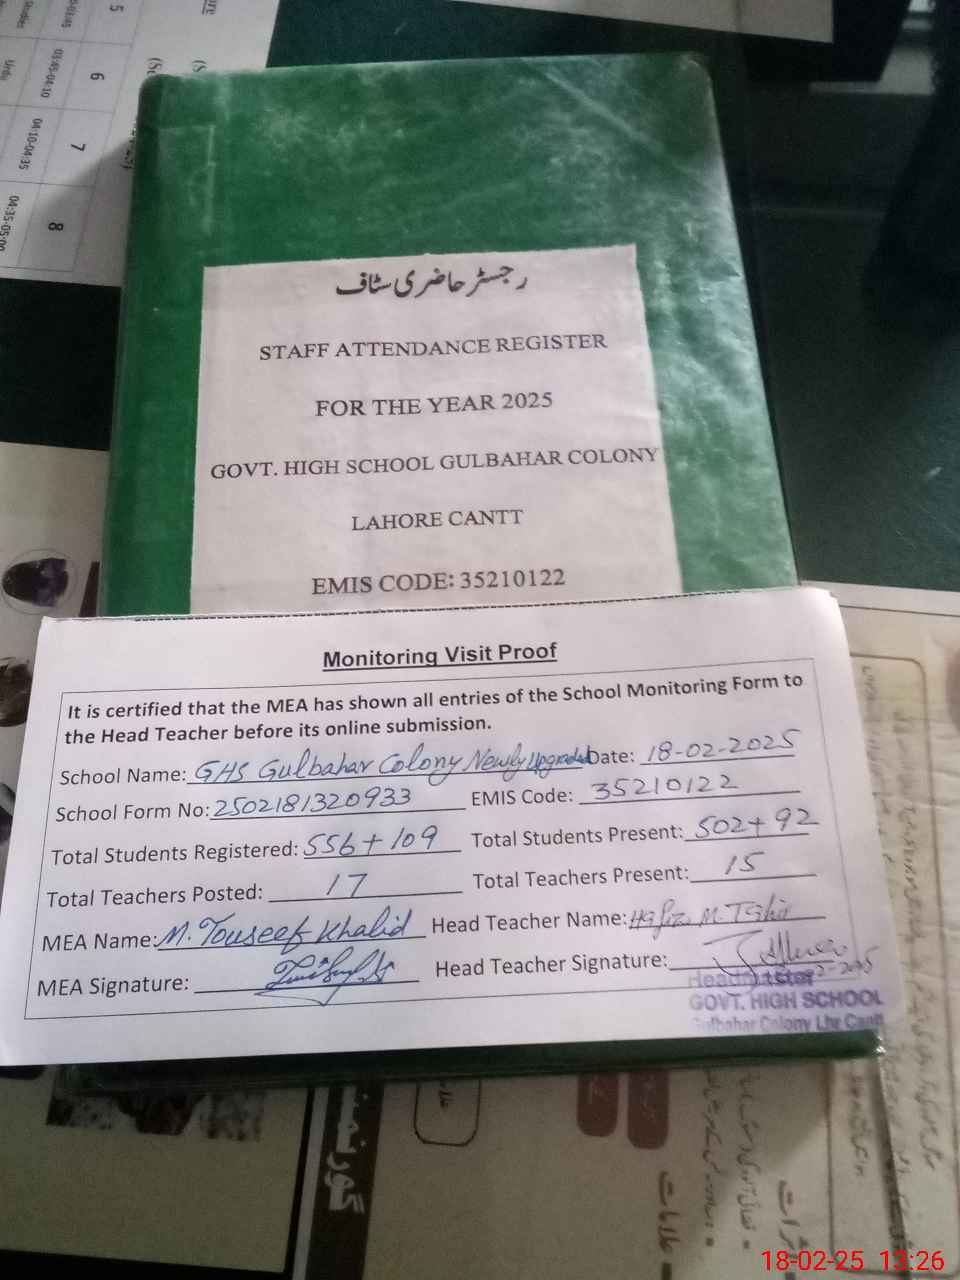 5
6
7
8
03:45-04:10
04:10-04:35
04:35-05:00
Urdu
رجسٹر حاضری سٹاف
STAFF ATTENDANCE REGISTER
FOR THE YEAR 2025
GOVT. HIGH SCHOOL GULBAHAR COLONY
LAHORE CANTT
EMIS CODE: 35210122
Monitoring Visit Proof
It is certified that the MEA has shown all entries of the School Monitoring Form to
the Head Teacher before its online submission.
School Name: GHS Gulbahar Colony Newly Upgraded Date: 18-02-2025
School Form No: 2502181320933 EMIS Code: 35210122
Total Students Registered: 556+109 Total Students Present: 502+92
Total Teachers Posted: 17 Total Teachers Present: 15
MEA Name: M. Touseef Khalid Head Teacher Name: Hafiz M. Tahir
MEA Signature: Head Teacher Signature:
Headmaster
GOVT. HIGH SCHOOL
Gulbahar Colony Lhr Cantt
18-02-25 13:26